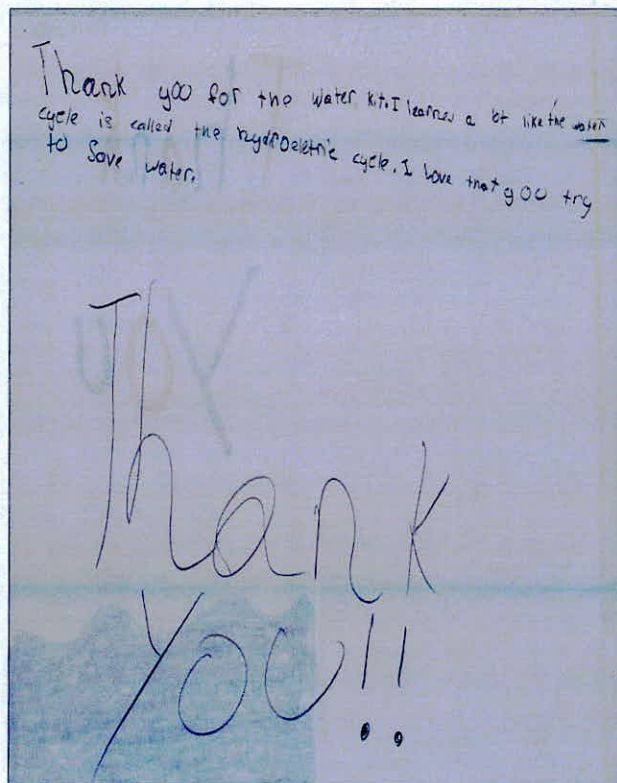 Thank you for the water kit. I learned a lot like the water
cycle is called the hydroeletric cycle. I love that you try
to Save water.
Thank
you!!